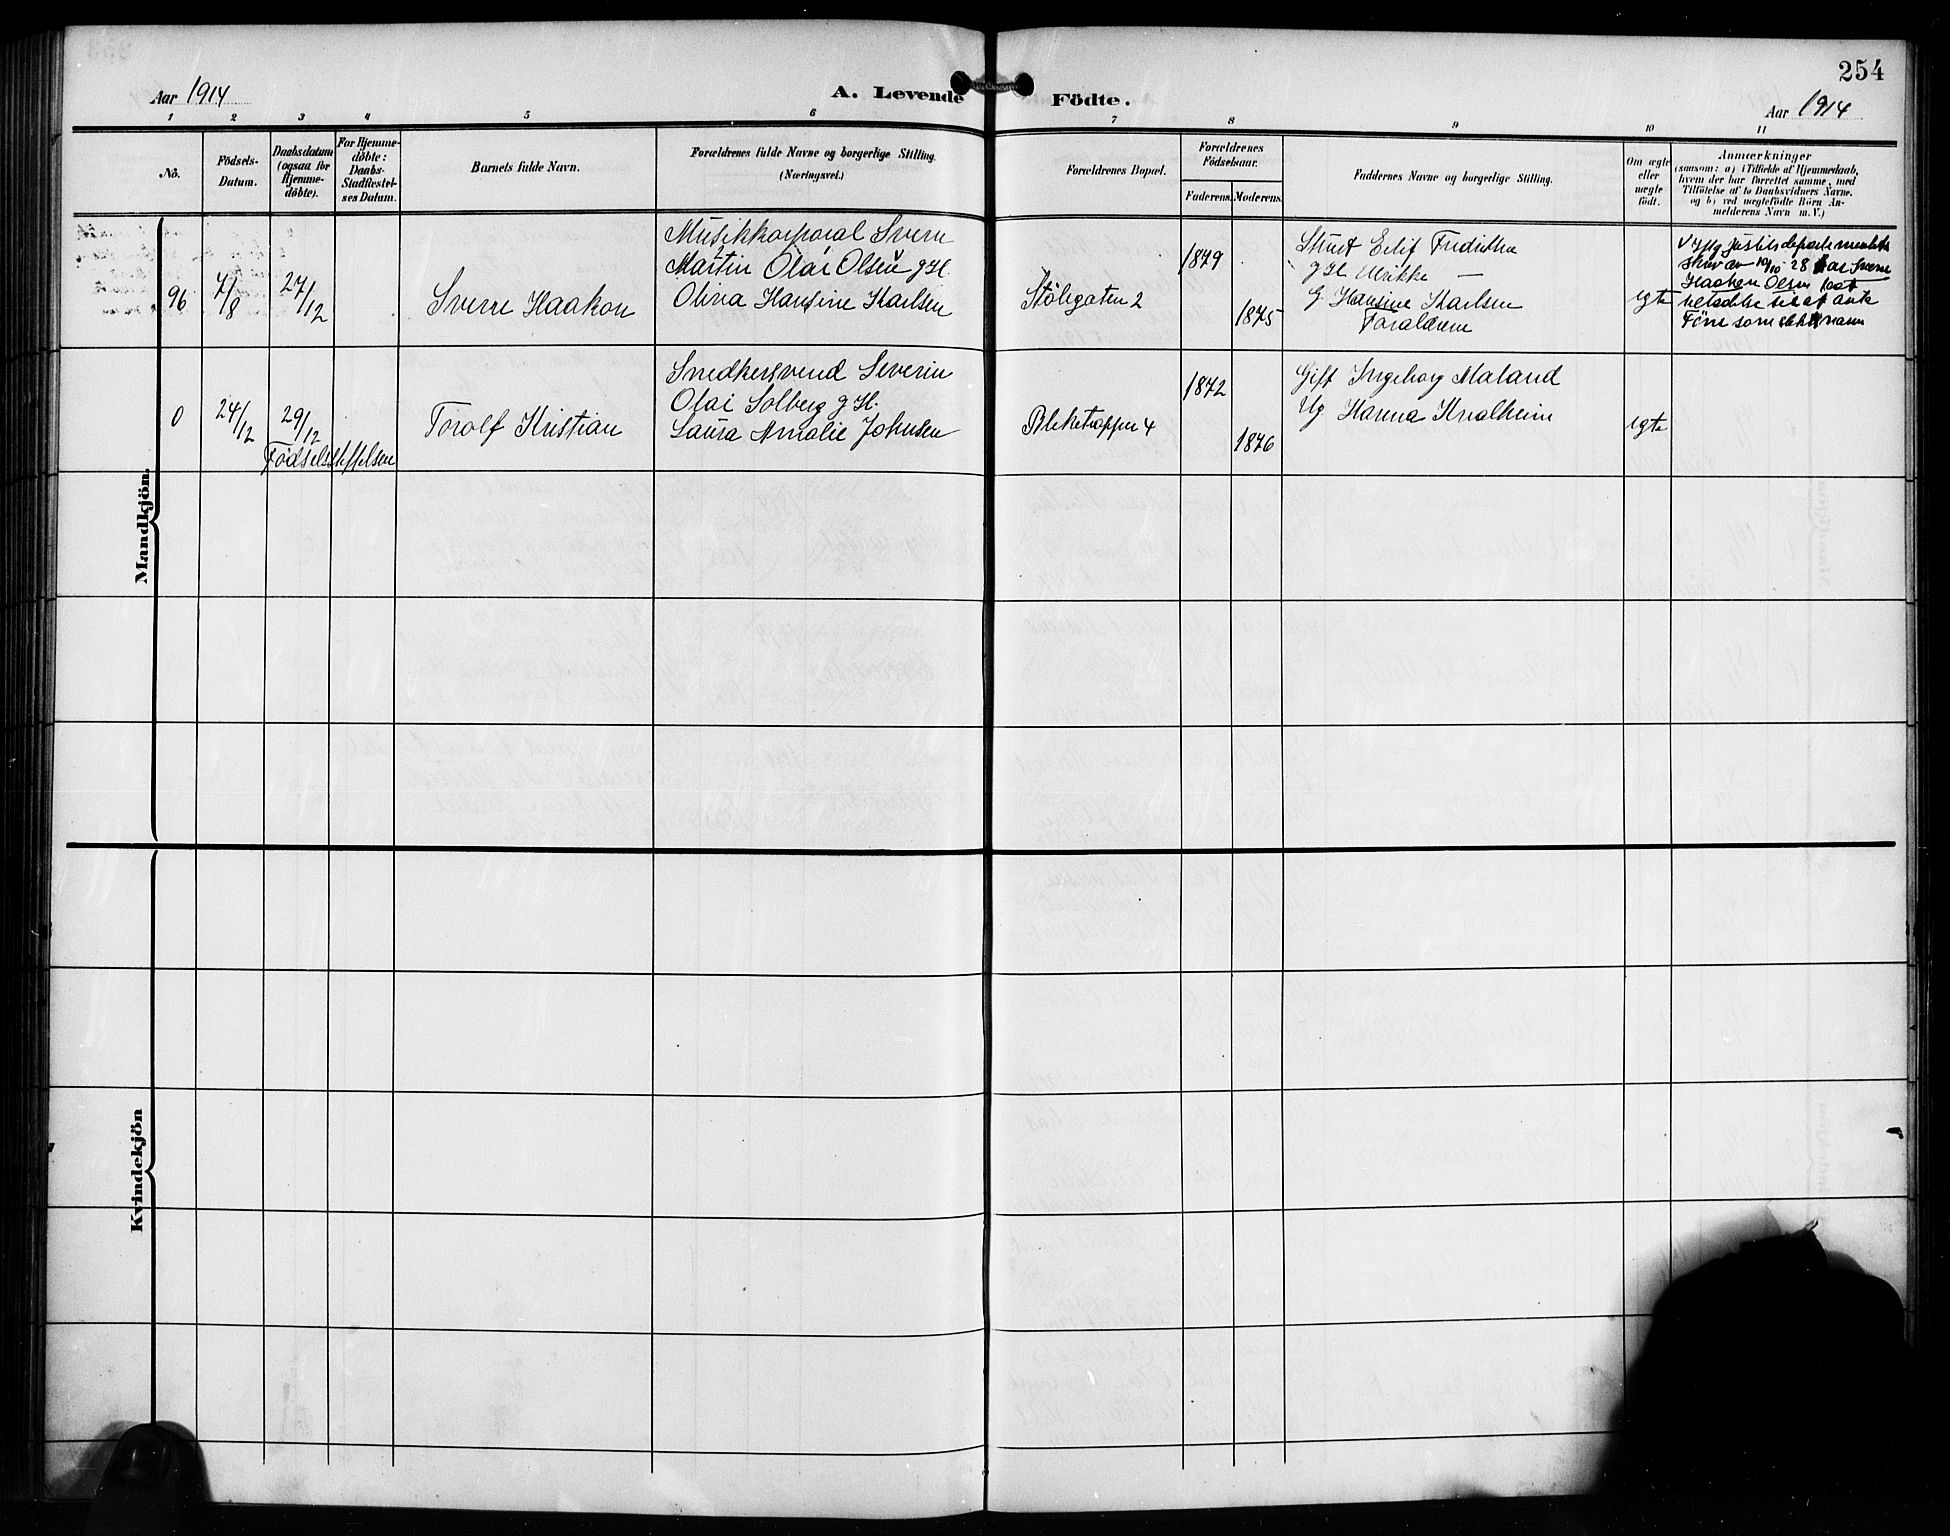 254
Aar 1914
A. Levende
Födte.
Aar 1914
1 2 3 4 5 6 7 8 9 10 11
No.
Födsels-
Datum.
Daabsdatum
(ogsaa for
Hjemme-
döbte).
For Hjemme-
döbte:
Daabs-
Stadfæstel-
ses Datum.
Barnets fulde Navn.
Forældrenes fulde Navne og borgerlige Stilling.
(Næringsvei.)
Forældrenes Bopæl.
Forældrenes
Födselsaar.
Faderens. Moderens.
Faddernes Navne og borgerlige Stilling.
Om ægte
eller
uægte
født.
Anmærkninger
(saasom: a) i Tilfælde af Hjemmedaab,
hvem der har forrettet samme, med
Tilföielse af to Daabsvidners Navne.
og b) ved uægtefödte Börn An-
melderens Navn m. V.)
Mandkjön.
96
4/8
27/12
Sverre Haakon
Musikkorporal Sverre
Martin Olai Olsen g H.
Olina Hansine Karlsen
Stölegaten 2
1879
1875
Eilif
g H Ulrikke —
G Hansine Karlsen
Forældrene
egte
justitsdepartementets
skriv av 10/10 28 har Sverre
Haakon Olsen faat
til at anta
som slektsnavn
0
24/12
29/12
Födselsstiftelsen
Torolf Kristian
Snedkersvend Severin
Olai Solberg g H.
Laura Amalie Johnsen
Bleketrappen 4
1872
1876
Gift Ingeborg Maland
Ug Karena Kvalheim
egte
Kvindekjön